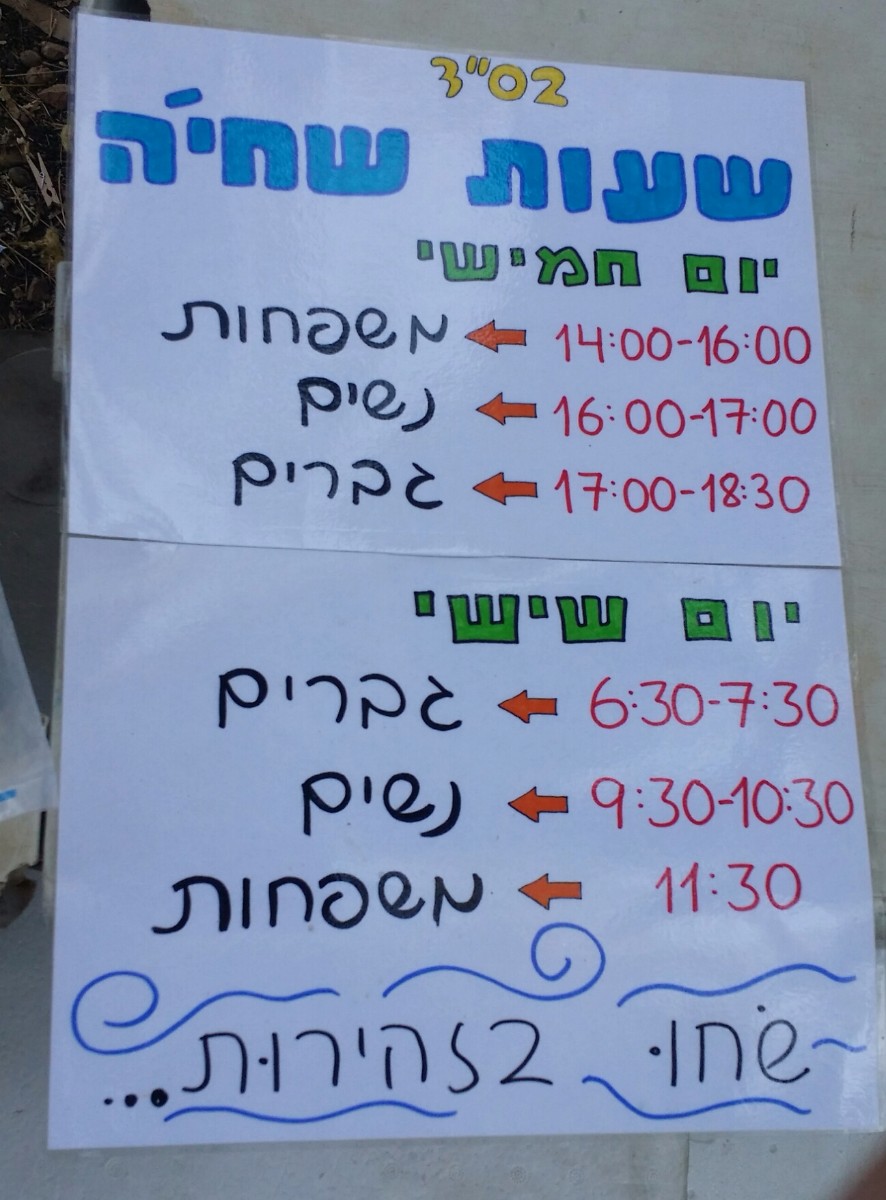 בס"ד
שעות שחי'ה
יום חמישי
14:00-16:00 משפחות
16:00-17:00 נשים
17:00-18:30 גברים
יום שישי
6:30-7:30 גברים
9:30-10:30 נשים
11:30 משפחות
שׂחוּ בזהירוּת...